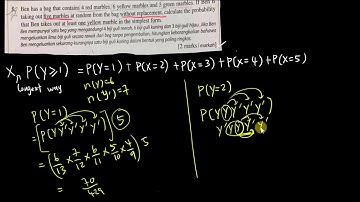 Ben has a bag that contains 4 red marbles, 6 yellow marbles and 3 green marbles. If Ben is
taking out five marbles at random from the bag without replacement, calculate the probability
that Ben taking out at least one yellow marble in the simplest form.
Ben mempunyai satu beg yang mengandungi 4 biji guli merah, 6 biji guli kuning dan 3 biji guli hijau. Jika Ben
mengeluarkan lima biji guli secara rawak dari beg tanpa pengembalian, hitungkan kebarangkalian bahawa Ben
mengeluarkan sekurang-kurangnya satu guli kuning dalam bentuk yang paling ringkas.
[2 marks / markah]
X, P(Y≥1) = P(Y=1) + P(X=2) + P(X=3) + P(X=4) + P(X=5)
longest way
n(Y)=6
n(Y')=7
P(Y=1)
= [P(Y Y' Y' Y' Y')] 5
= (6/13 × 7/12 × 6/11 × 5/10 × 4/9) 5
= 70/429
P(Y=2)
P(Y Y Y' Y' Y')
Y Y' Y Y' Y'